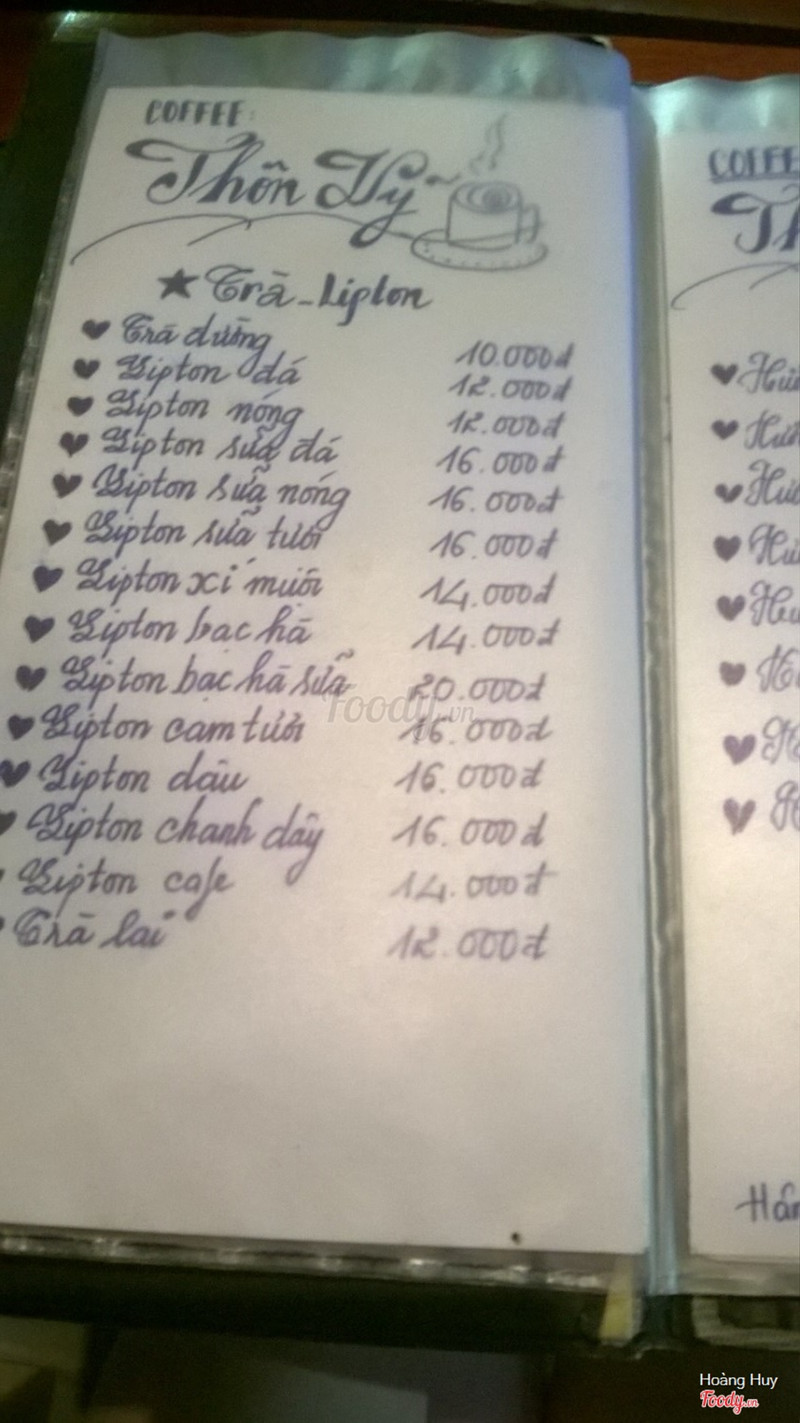 COFFEE:
Thôn Vỹ
★ Trà - Lipton
♥ Trà đường 10.000đ
♥ Lipton đá 12.000đ
♥ Lipton nóng 12.000đ
♥ Lipton sữa đá 16.000đ
♥ Lipton sữa nóng 16.000đ
♥ Lipton sữa tươi 16.000đ
♥ Lipton xí muội 14.000đ
♥ Lipton bạc hà 14.000đ
♥ Lipton bạc hà sữa 20.000đ
♥ Lipton cam tươi 16.000đ
♥ Lipton dâu 16.000đ
♥ Lipton chanh dây 16.000đ
Lipton cafe 14.000đ
Trà lài 12.000đ
Foody.vn
COFFEE
Hoàng Huy
Foody.vn